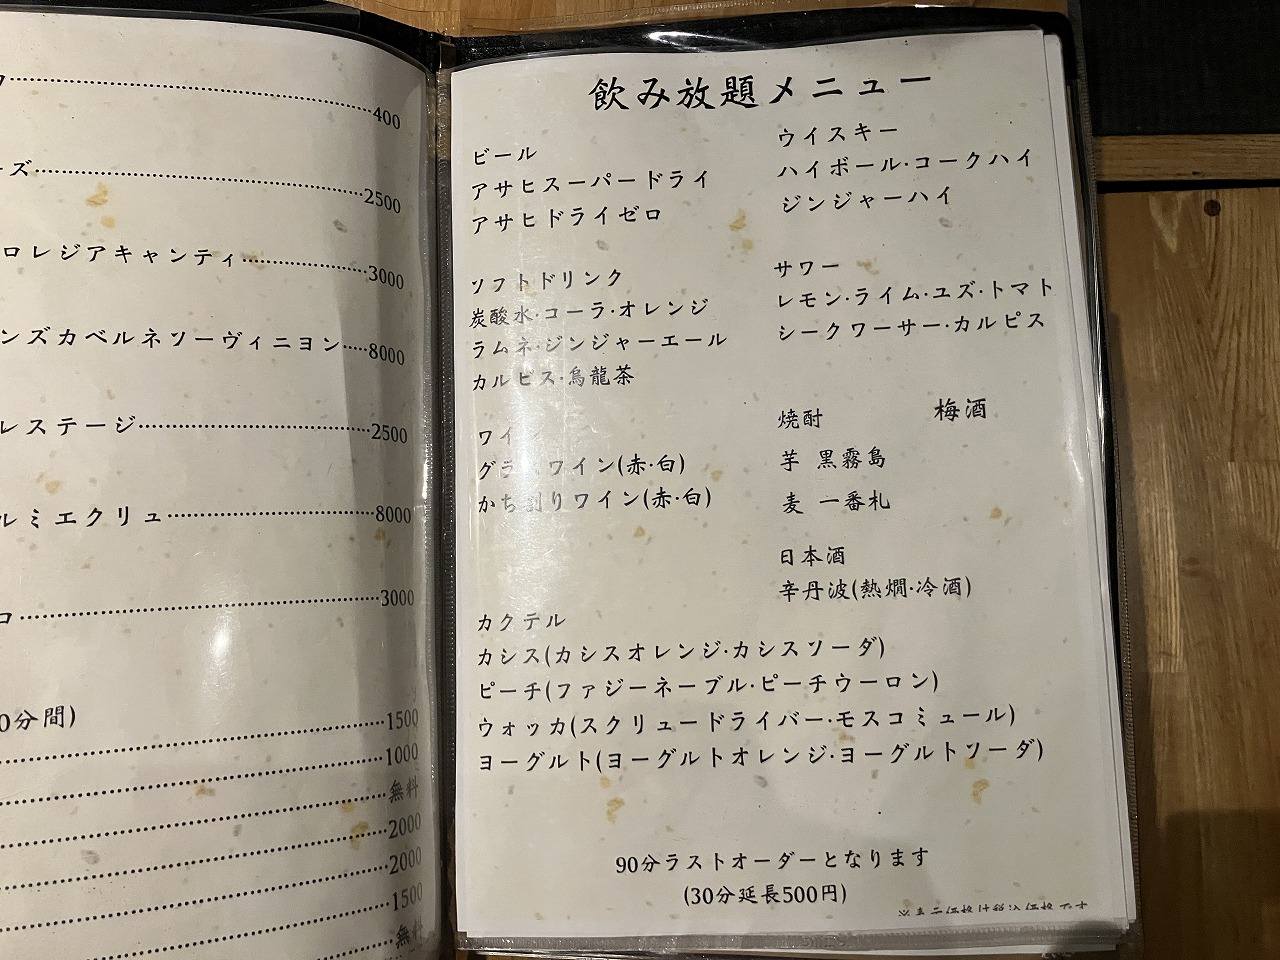 400
ーズ 2500
ロレジアキャンティ 3000
ンズカベルネソーヴィニヨン 8000
レステージ 2500
ルミエクリュ 8000
ロ 3000
0分間)
1500
1000
無料
2000
2000
1500
無料
飲み放題メニュー
ビール
アサヒスーパードライ
アサヒドライゼロ
ソフトドリンク
炭酸水·コーラ·オレンジ
ラムネ·ジンジャーエール
カルピス·烏龍茶
ワイン
グラスワイン(赤·白)
かち割りワイン(赤·白)
ウイスキー
ハイボール·コークハイ
ジンジャーハイ
サワー
レモン·ライム·ユズ·トマト
シークワーサー·カルピス
焼酎 梅酒
芋 黒霧島
麦 一番札
日本酒
辛丹波(熱燗·冷酒)
カクテル
カシス(カシスオレンジ·カシスソーダ)
ピーチ(ファジーネーブル·ピーチウーロン)
ウォッカ(スクリュードライバー·モスコミュール)
ヨーグルト(ヨーグルトオレンジ·ヨーグルトソーダ)
90分ラストオーダーとなります
(30分延長500円)
※表示価格は税込価格です